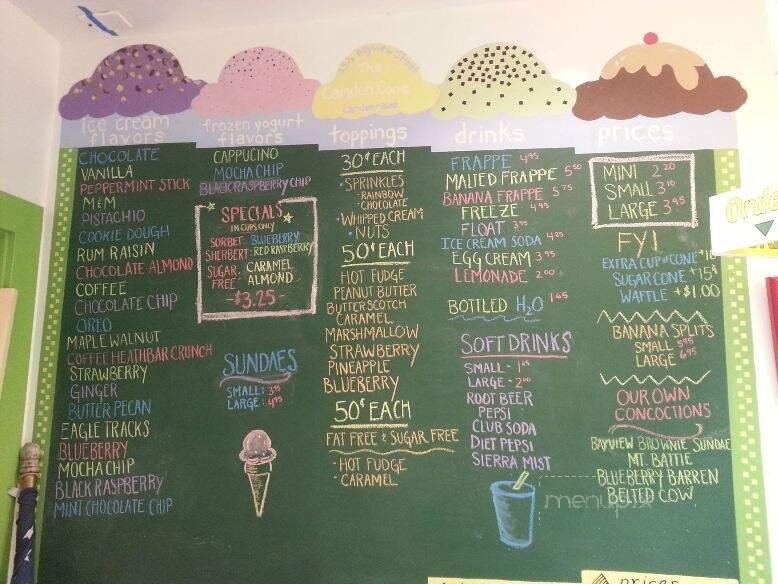 Ice cream
flavors
CHOCOLATE
VANILLA
PEPPERMINT STICK
M&M
PISTACHIO
COOKIE DOUGH
RUM RAISIN
CHOCOLATE ALMOND
COFFEE
CHOCOLATE CHIP
OREO
MAPLE WALNUT
COFFEE HEATHBAR CRUNCH
STRAWBERRY
GINGER
BUTTER PECAN
EAGLE TRACKS
BLUEBERRY
MOCHA CHIP
BLACK RASPBERRY
MINT CHOCOLATE CHIP
frozen yogurt
flavors
CAPPUCINO
MOCHA CHIP
BLACK RASPBERRY CHIP
SPECIALS
IN CUPS ONLY
SORBET: BLUEBERRY
SHERBERT: RED RASPBERRY
SUGAR FREE: CARAMEL ALMOND
-$3.25-
SUNDAES
SMALL: 3.95
LARGE: 4.95
The
Camden Cone
toppings
30¢ EACH
· SPRINKLES
- RAINBOW
- CHOCOLATE
· WHIPPED CREAM
· NUTS
50¢ EACH
HOT FUDGE
PEANUT BUTTER
BUTTERSCOTCH
CARAMEL
MARSHMALLOW
STRAWBERRY
PINEAPPLE
BLUEBERRY
50¢ EACH
FAT FREE & SUGAR FREE
- HOT FUDGE
- CARAMEL
drinks
FRAPPE 4.95
MALTED FRAPPE 5.50
BANANA FRAPPE 5.75
FREEZE 4.95
FLOAT 3.95
ICE CREAM SODA 4.25
EGG CREAM 3.95
LEMONADE 2.00
BOTTLED H2O 1.65
SOFT DRINKS
SMALL -
LARGE - 2.00
ROOT BEER
PEPSI
CLUB SODA
DIET PEPSI
SIERRA MIST
prices
MINI 2.20
SMALL 3.10
LARGE 3.95
FYI
EXTRA CUP or CONE +10¢
SUGAR CONE +15¢
WAFFLE +$1.00
BANANA SPLITS
SMALL 5.95
LARGE 6.95
OUR OWN
CONCOCTIONS
BAYVIEW BROWNIE SUNDAE
MT. BATTIE
BLUEBERRY BARREN
BELTED COW
menupix
prices